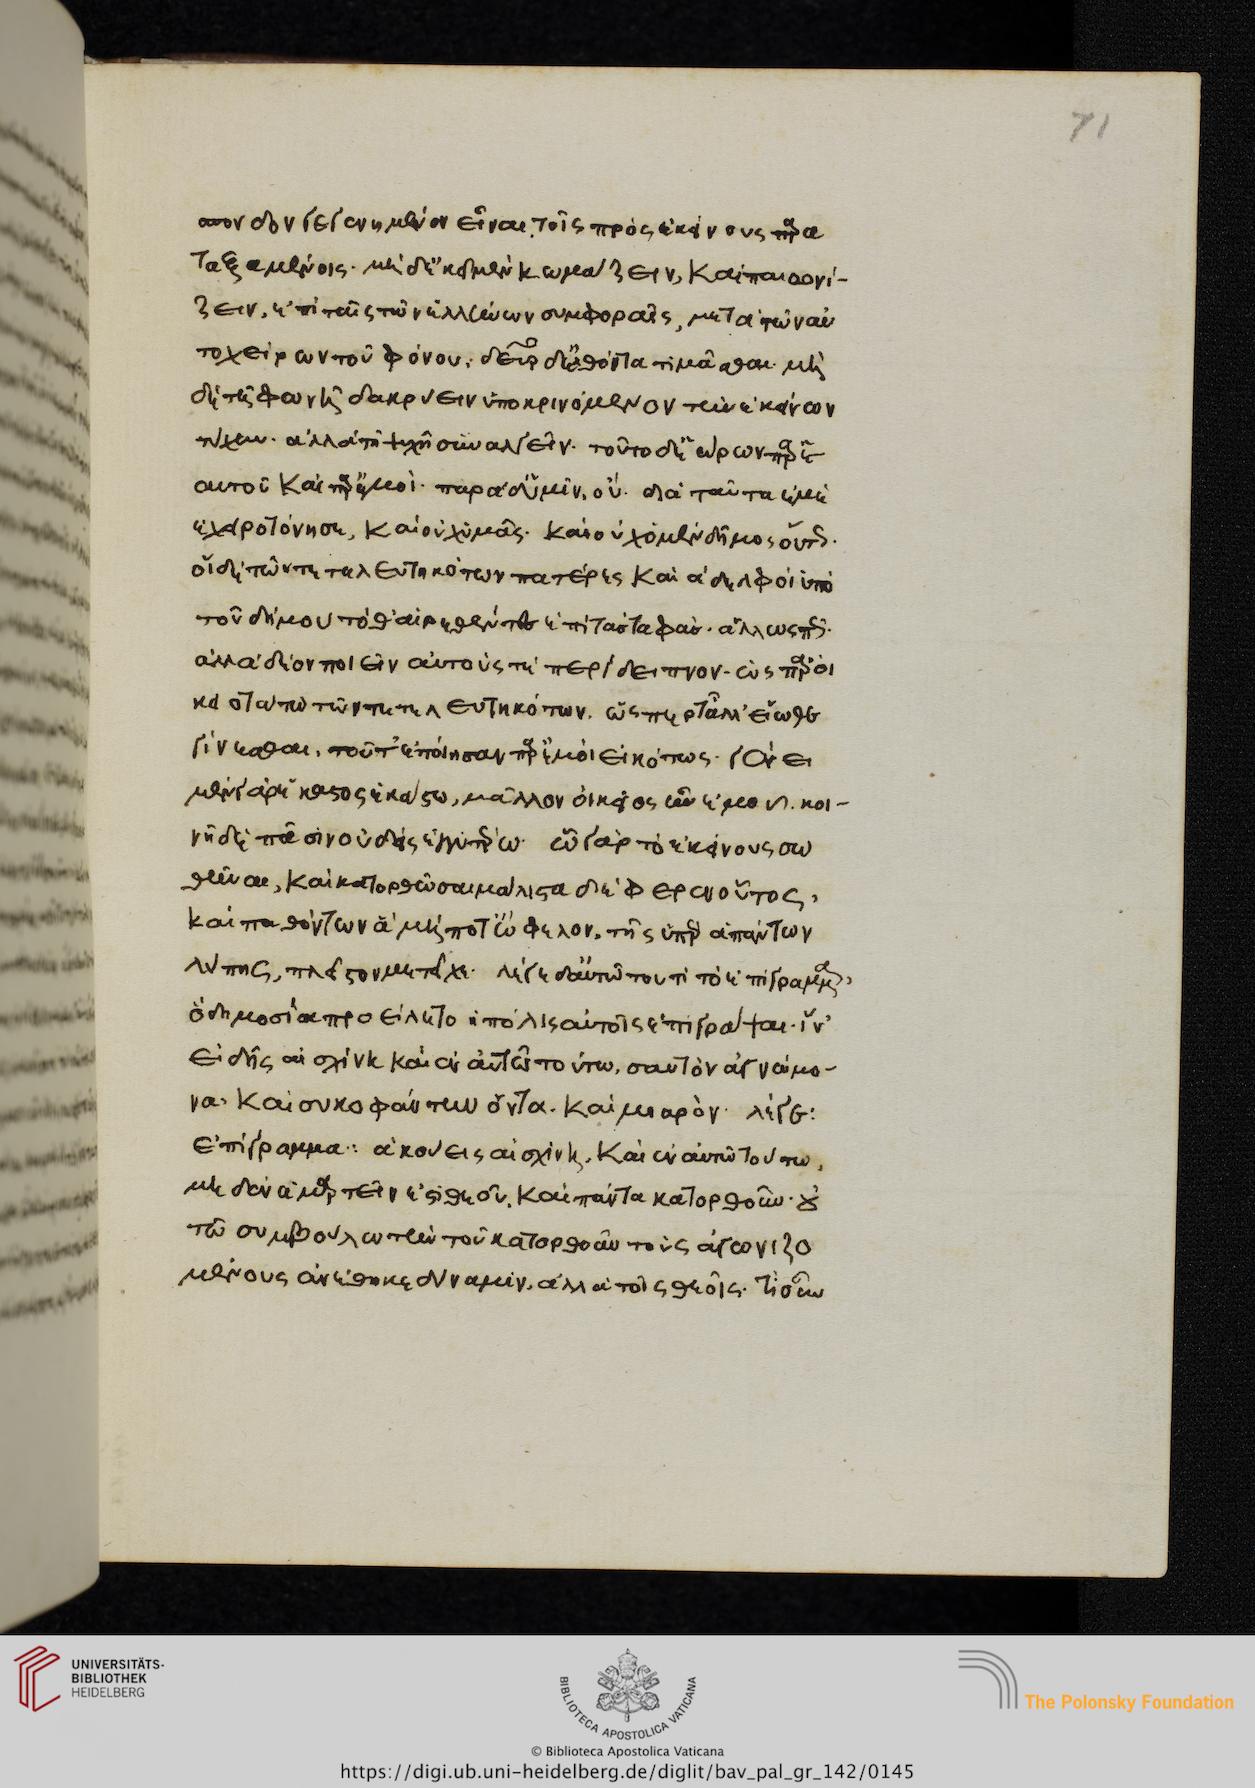 71
σπονδον γεγενημένον εἶναι τοῖς πρὸς ἐκείνους παρα
ταξαμένοις. μηδ' ἐκεῖ μὲν κωμάζειν, καὶ παιανί-
ζειν, ἐπὶ ταῖς τῶν ἑλλήνων συμφοραῖς, μετὰ τῶν αὐ
τοχείρων τοῦ φόνου. δεῦρο δ' ἐλθόντα τιμᾶσθαι. μὴ
δὲ τῇ φωνῇ δακρύειν ὑποκρινόμενον τὴν ἐκείνων
τύχην. ἀλλὰ τῇ ψυχῇ συναλγεῖν. τοῦτο δὲ ἑώρων παρ' ἑ
αυτοῖς καὶ παρ' ἐμοί. παρὰ δ' ὑμῖν, οὔ. διὰ ταῦτα ἐμὲ
ἐχειροτόνησαν, καὶ οὐχ ὑμᾶς. καὶ οὐχ ὁ μὲν δῆμος οὕτως.
οἱ δὲ τῶν τετελευτηκότων πατέρες καὶ ἀδελφοὶ ὑπὸ
τοῦ δήμου τόθ' αἱρεθέντες ἐπὶ τὰς ταφὰς. ἄλλως πως.
ἀλλὰ δέον ποιεῖν αὐτοὺς τὸ περίδειπνον. ὡς παρ' οἰ
κειοτάτῳ τῶν τετελευτηκότων, ὥσπερ τἆλλ' εἴωθε
γίνεσθαι, τοῦτ' ἐποίησαν παρ' ἐμοὶ εἰκότως. γένει
μὲν γὰρ ἕκαστος ἑκάστῳ, μᾶλλον οἰκεῖος ἦν ἐμοῦ. κοι-
νῇ δὲ πᾶσιν οὐδεὶς ἐγγυτέρω. ᾧ γὰρ τὸ ἐκείνους σω
θῆναι, καὶ κατορθῶσαι μάλιστα διέφερεν οὗτος,
καὶ παθόντων ἃ μήποτ' ὤφελον, τῆς ὑπὲρ ἁπάντων
λύπης, πλεῖστον μετεῖχε. λέγε δ' αὐτῷ τουτὶ τὸ ἐπίγραμμα,
ὃ δημοσίᾳ προείλετο ἡ πόλις αὐτοῖς ἐπιγράψαι. ἵν'
εἰδῇς αἰσχίνη καὶ ἐν αὐτῷ τούτῳ, σαυτὸν ἀγνώμο-
να, καὶ συκοφάντην ὄντα. καὶ μιαρὸν. λέγε:
Ἐπίγραμμα: ἀκούεις αἰσχίνη, καὶ ἐν αὐτῷ τούτῳ,
μηδὲν ἁμαρτεῖν ἐστι θεῶν, καὶ πάντα κατορθοῦν. οὐ
τῷ συμβούλῳ τὴν τοῦ κατορθοῦν τοὺς ἀγωνιζο
μένους ἀνέθηκε δύναμιν, ἀλλὰ τοῖς θεοῖς. τί οὖν
UNIVERSITÄTS-
BIBLIOTHEK
HEIDELBERG
BIBLIOTECA APOSTOLICA VATICANA
The Polonsky Foundation
© Biblioteca Apostolica Vaticana
https://digi.ub.uni-heidelberg.de/diglit/bav_pal_gr_142/0145